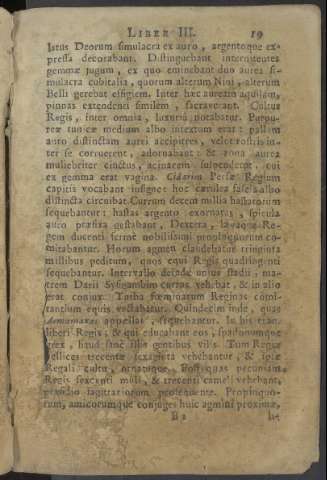 LIBER III. 19
latus Deorum simulacra ex auro, argentoque ex-
pressa decorabant. Distinguebant internitentes
gemmæ jugum, ex quo eminebant duo aurea si-
mulacra cubitalia, quorum alterum Nini, alterum
Belli gerebat effigiem. Inter hæc auream aquilam,
pinnas extendenti similem, sacraverant. Cultus
Regis, inter omnia, luxuria notabatur. Purpu-
reæ tunicæ medium albo intextum erat: pallam
auro distinctam aurei accipitres, velut rostris in-
ter se corruerent, adornabant: & zona aurea
muliebriter cinctus, acinacem suspenderat, cui
ex gemma erat vagina. Cidarim Persæ Regium
capitis vocabant insigne: hoc cærulea fascia albo
distincta circuibat. Currum decem millia hastatorum
sequebantur: hastas argento exornatas, spicula
auro præfixa gestabant. Dextera, lævaque Re-
gem ducenti ferme nobilissimi propinquorum co-
mitabantur. Horum agmen claudebatur triginta
millibus peditum, quos equi Regis quadringenti
sequebantur. Intervallo deinde unius stadii, ma-
trem Darii Sysigambim currus vehebat, & in alio
erat conjux. Turba fœminarum Reginas comi-
tantium equis vectabatur. Quindecim inde, quas
Armamaxas appellant, sequebantur. In his erant
liberi Regis, & qui educabant eos, spadonumque
grex, haud sane illis gentibus vilis. Tum Regiæ
pellices trecentæ sexaginta vehebantur, & ipsæ
Regali cultu, ornatuque. Post quas pecuniam
Regis sexcenti muli, & trecenti cameli vehebant,
præsidio sagittariorum prosequente. Propinquo-
rum, amicorumque conjuges huic agmini proximæ,
B 2